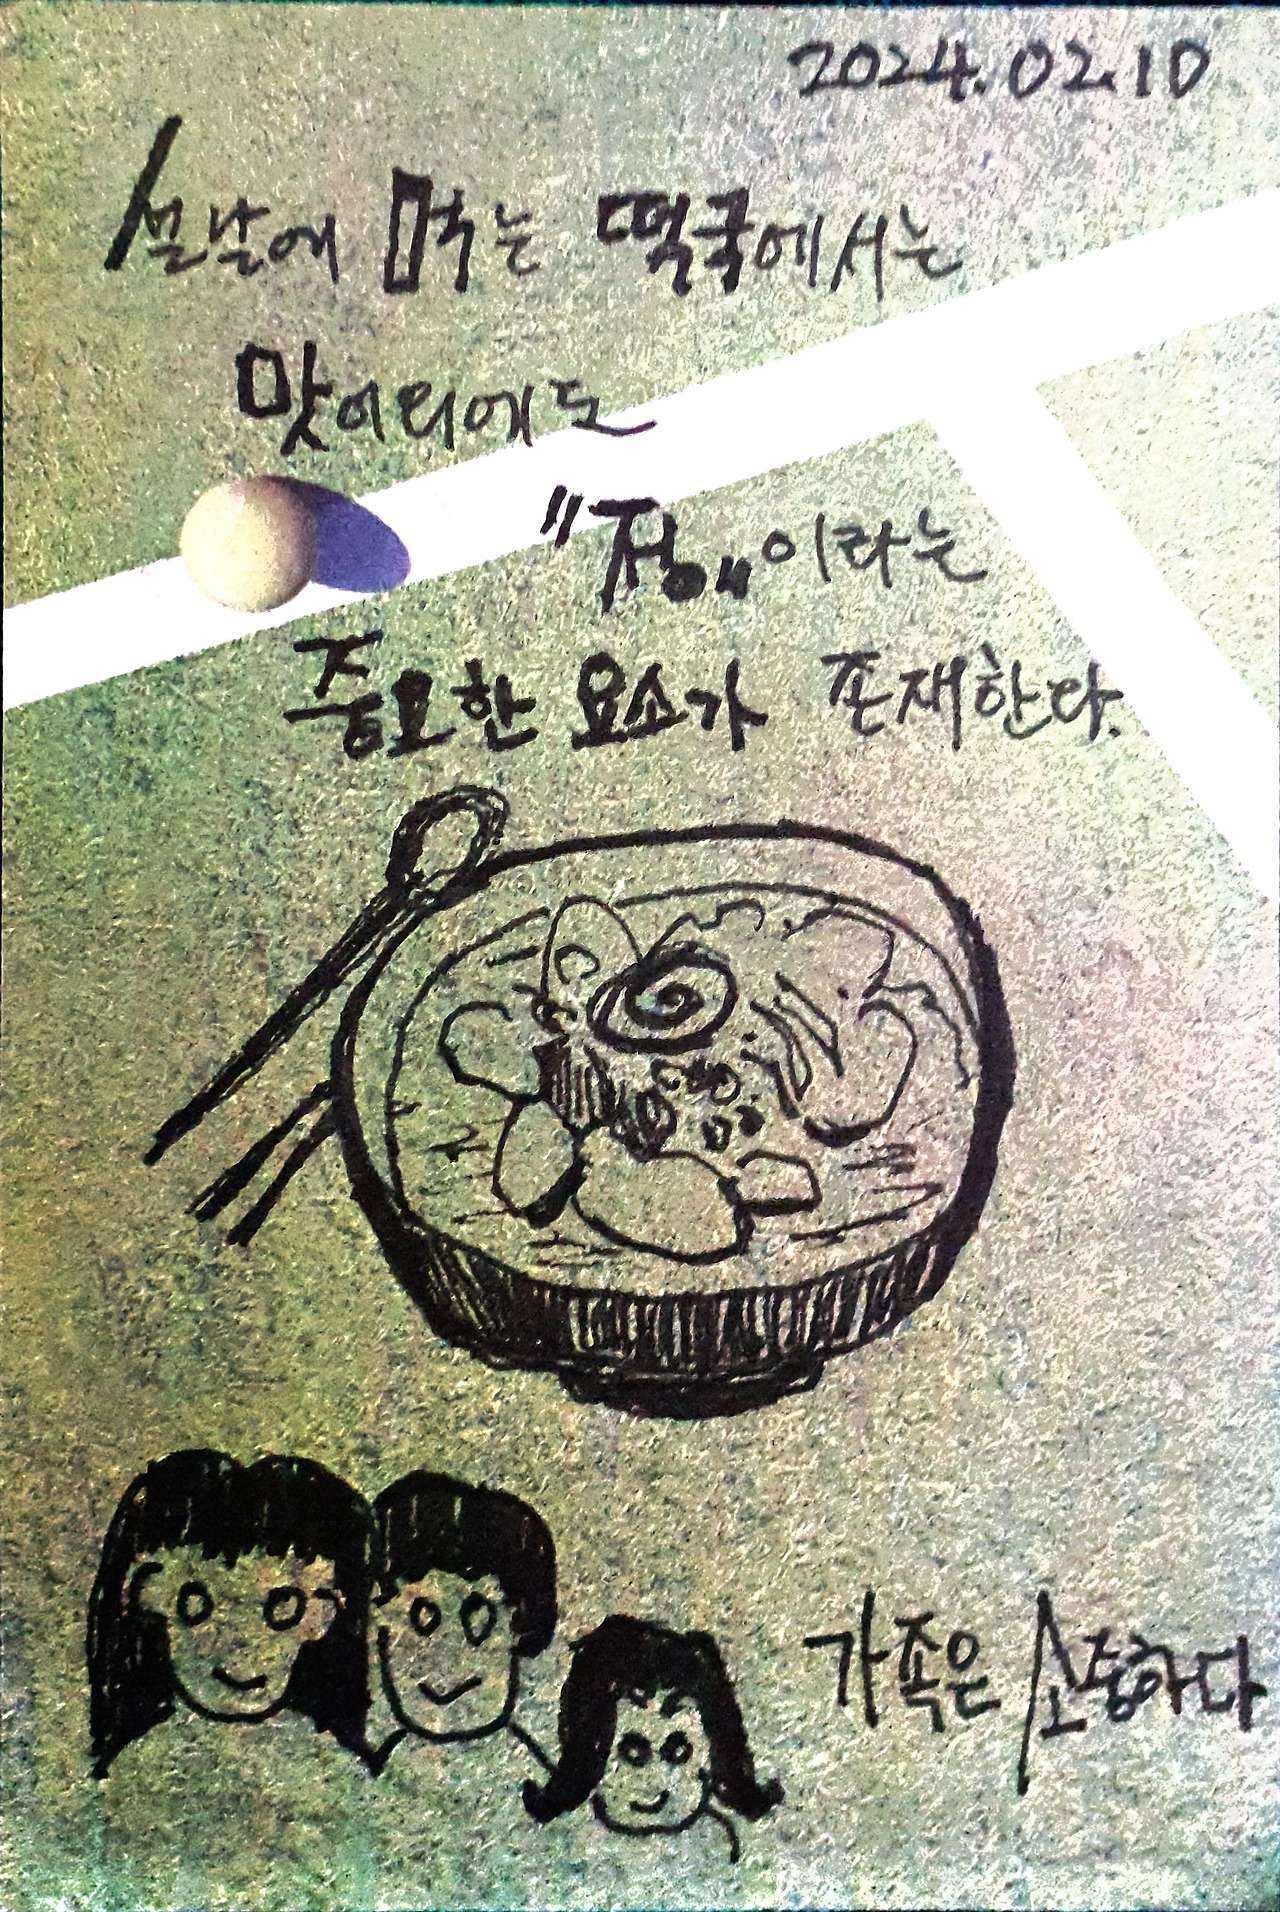 2024.02.10
설날에 먹는 떡국에서는
맛이외에도
"정"이라는
중요한 요소가 존재한다.
가족은 소중하다